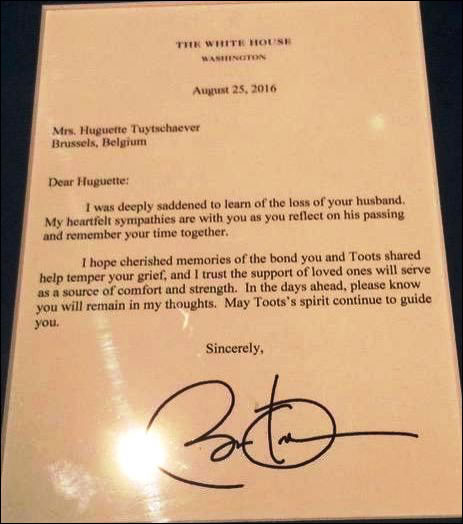 THE WHITE HOUSE
WASHINGTON
August 25, 2016
Mrs. Huguette Tuytschaever
Brussels, Belgium
Dear Huguette:
I was deeply saddened to learn of the loss of your husband.
My heartfelt sympathies are with you as you reflect on his passing
and remember your time together.
I hope cherished memories of the bond you and Toots shared
help temper your grief, and I trust the support of loved ones will serve
as a source of comfort and strength. In the days ahead, please know
you will remain in my thoughts. May Toots's spirit continue to guide
you.
Sincerely,